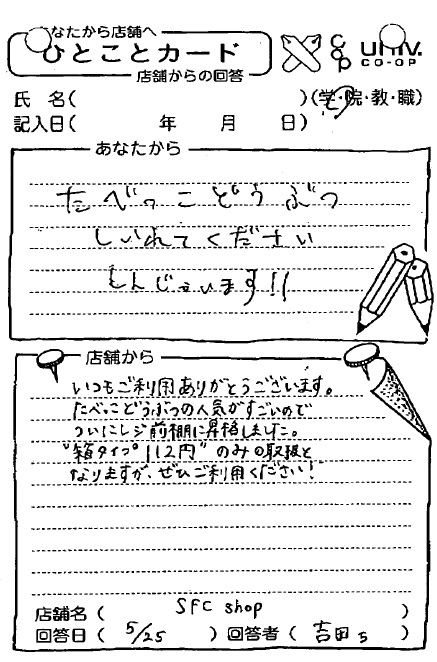 あなたから店舗へ
ひとことカード
店舗からの回答
CO-OP
UNIV.
CO-OP
氏 名( )(学・院・教・職)
記入日( 年 月 日)
あなたから
たべっこどうぶつ
しいれてください
しんじています!!
店舗から
いつもご利用ありがとうございます。
たべっこどうぶつの人気がすごいので
ついにレジ前棚に昇格しました。
"箱タイプ112円"のみの取扱と
なりますが、ぜひご利用ください!
店舗名( SFC shop )
回答日( 5/25 )回答者( 吉田 )